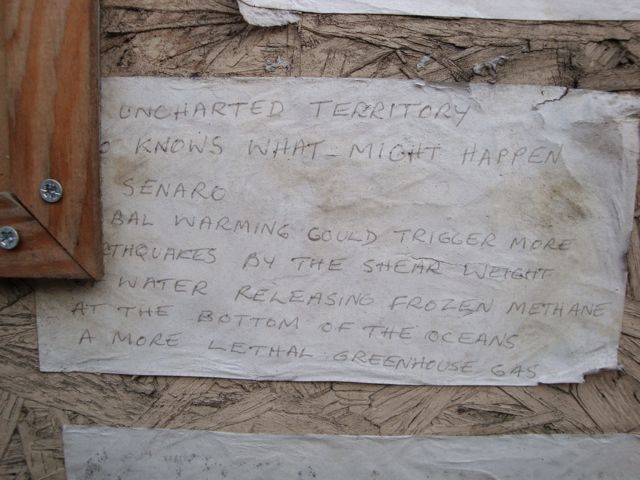 UNCHARTED TERRITORY
O KNOWS WHAT-MIGHT HAPPEN
SENARO
BAL WARMING COULD TRIGGER MORE
THQUAKES BY THE SHEAR WEIGHT
WATER RELEASING FROZEN METHANE
AT THE BOTTOM OF THE OCEANS
A MORE LETHAL GREENHOUSE GAS